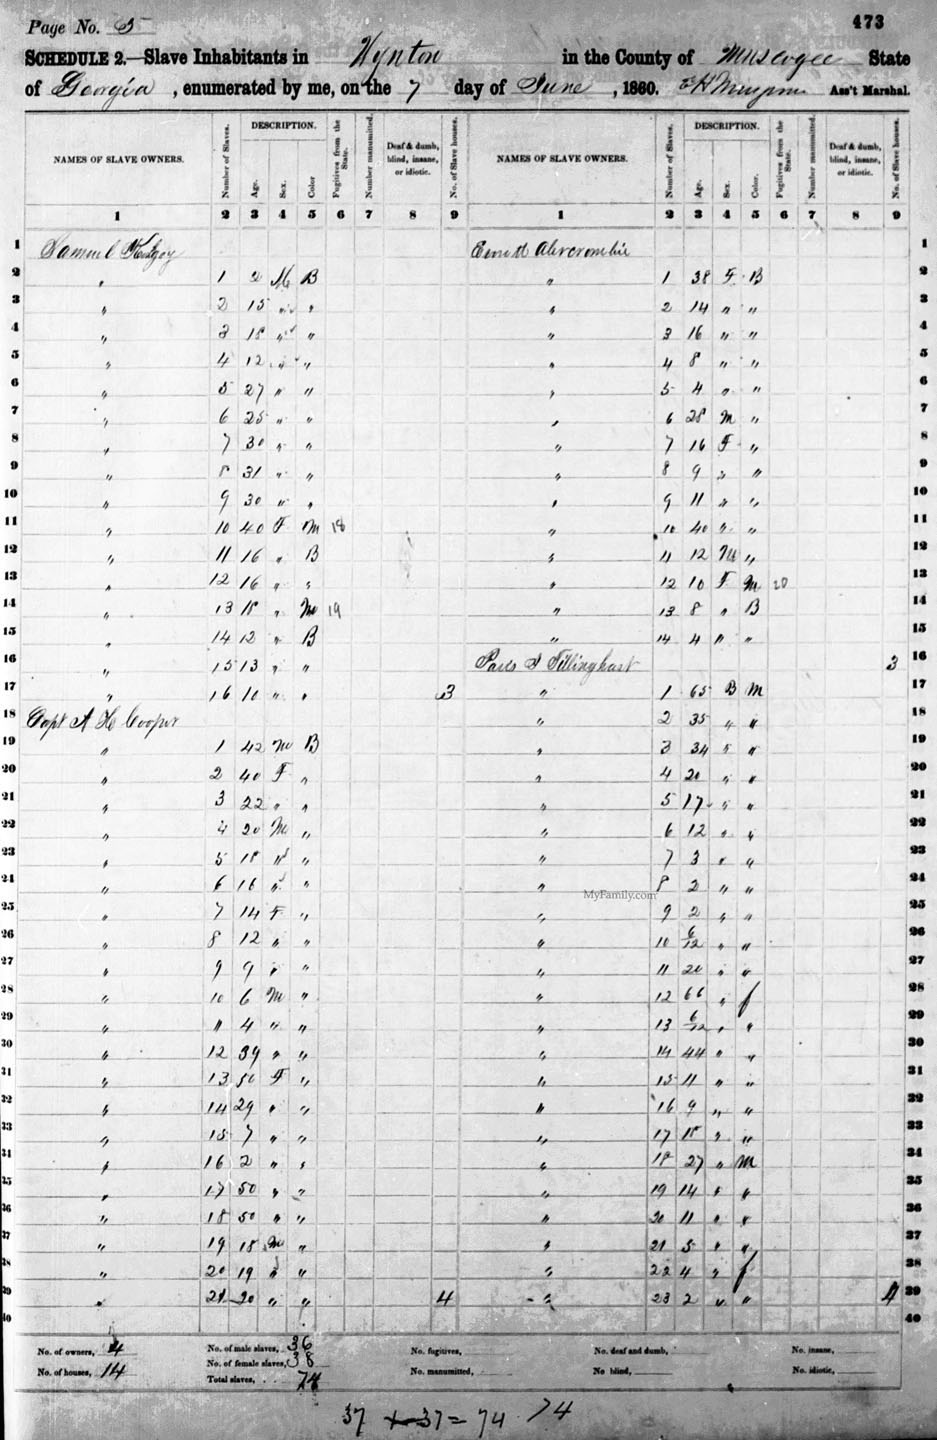 Page No. 5
473
SCHEDULE 2.—Slave Inhabitants in Wynton in the County of Muscogee State
of Georgia, enumerated by me, on the 7 day of June, 1860. Ass't Marshal.
NAMES OF SLAVE OWNERS. Number of Slaves. DESCRIPTION. Age. Sex. Color Fugitives from the State. Number manumitted. Deaf & dumb, blind, insane, or idiotic. No. of Slave houses. NAMES OF SLAVE OWNERS. Number of Slaves. DESCRIPTION. Age. Sex. Color. Fugitives from the State. Number manumitted. Deaf & dumb, blind, insane, or idiotic. No. of Slave houses.
1 2 3 4 5 6 7 8 9 1 2 3 4 5 6 7 8 9
1 Samuel Abercrombie 1
2 " 1 2 M B " 1 38 F B 2
3 " 2 15 " " " 2 14 " " 3
4 " 3 18 " " " 3 16 " " 4
5 " 4 12 " " " 4 8 " " 5
6 " 5 27 " " " 5 4 " " 6
7 " 6 25 " " " 6 28 M " 7
8 " 7 30 " " " 7 16 F " 8
9 " 8 31 " " " 8 9 " " 9
10 " 9 30 " " " 9 11 " " 10
11 " 10 40 F M 18 " 10 40 " " 11
12 " 11 16 " B " 11 12 M " 12
13 " 12 16 " " " 12 10 F M 20 13
14 " 13 18 " M 19 " 13 8 " B 14
15 " 14 12 " B " 14 4 " " 15
16 " 15 13 " " Tillinghast 3 16
17 " 16 10 " " 3 " 1 65 B M 17
18 Capt A H Cooper " 2 35 " " 18
19 " 1 42 M B " 3 34 " " 19
20 " 2 40 F " " 4 20 " " 20
21 " 3 22 " " " 5 17 " " 21
22 " 4 20 M " " 6 12 " " 22
23 " 5 18 " " " 7 3 " " 23
24 " 6 16 " " " 8 2 " " 24
MyFamily.com
25 " 7 14 F " " 9 2 " " 25
26 " 8 12 " " " 10 6/12 " " 26
27 " 9 9 " " " 11 20 " " 27
28 " 10 6 M " " 12 66 " f 28
29 " 11 4 " " " 13 6/12 " " 29
30 " 12 39 " " " 14 44 " " 30
31 " 13 50 F " " 15 11 " " 31
32 " 14 29 " " " 16 9 " " 32
33 " 15 7 " " " 17 18 " " 33
34 " 16 2 " " " 18 27 " M 34
35 " 17 50 " " " 19 14 " " 35
36 " 18 50 " " " 20 11 " " 36
37 " 19 18 M " " 21 5 " " 37
38 " 20 19 " " " 22 4 " f 38
39 " 21 20 " " 4 " 23 2 " " 4 39
40 40
No. of owners, 4 No. of male slaves, 36 No. fugitives, No. deaf and dumb, No. insane,
No. of female slaves, 38
No. of houses, 14 Total slaves, 74 No. manumitted, No blind, No. idiotic,
37 + 37 = 74 74